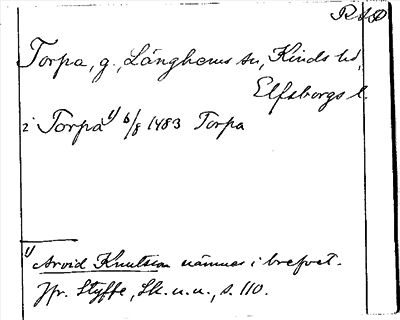 RAO
Torpa, g., Länghems sn, Kinds hd,
Elfsborgs l.
i Torpa 1) 6/8 1483 Torpa
1) Arvid Knutsson nämnes i brefvet.
Jfr. Styffe, Sk. u. u., s. 110.